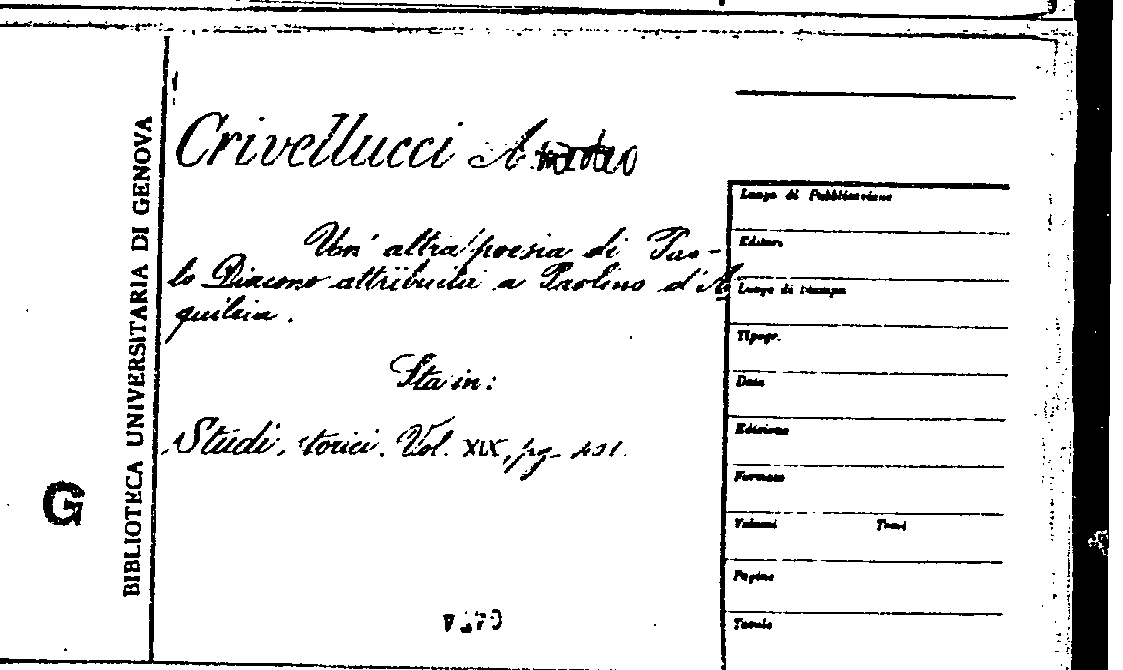 BIBLIOTECA UNIVERSITARIA DI GENOVA
G
Crivellucci Amedeo
Un' altra poesia di Pao-
lo Diacono attribuita a Paolino d'A
quileia.
Sta in:
Studi storici. Vol. XIX, pg.
Luogo di Pubblicazione
Editore
Luogo di stampa
Tipogr.
Data
Edizione
Formato
Volumi Tomi
Pagine
Tavole